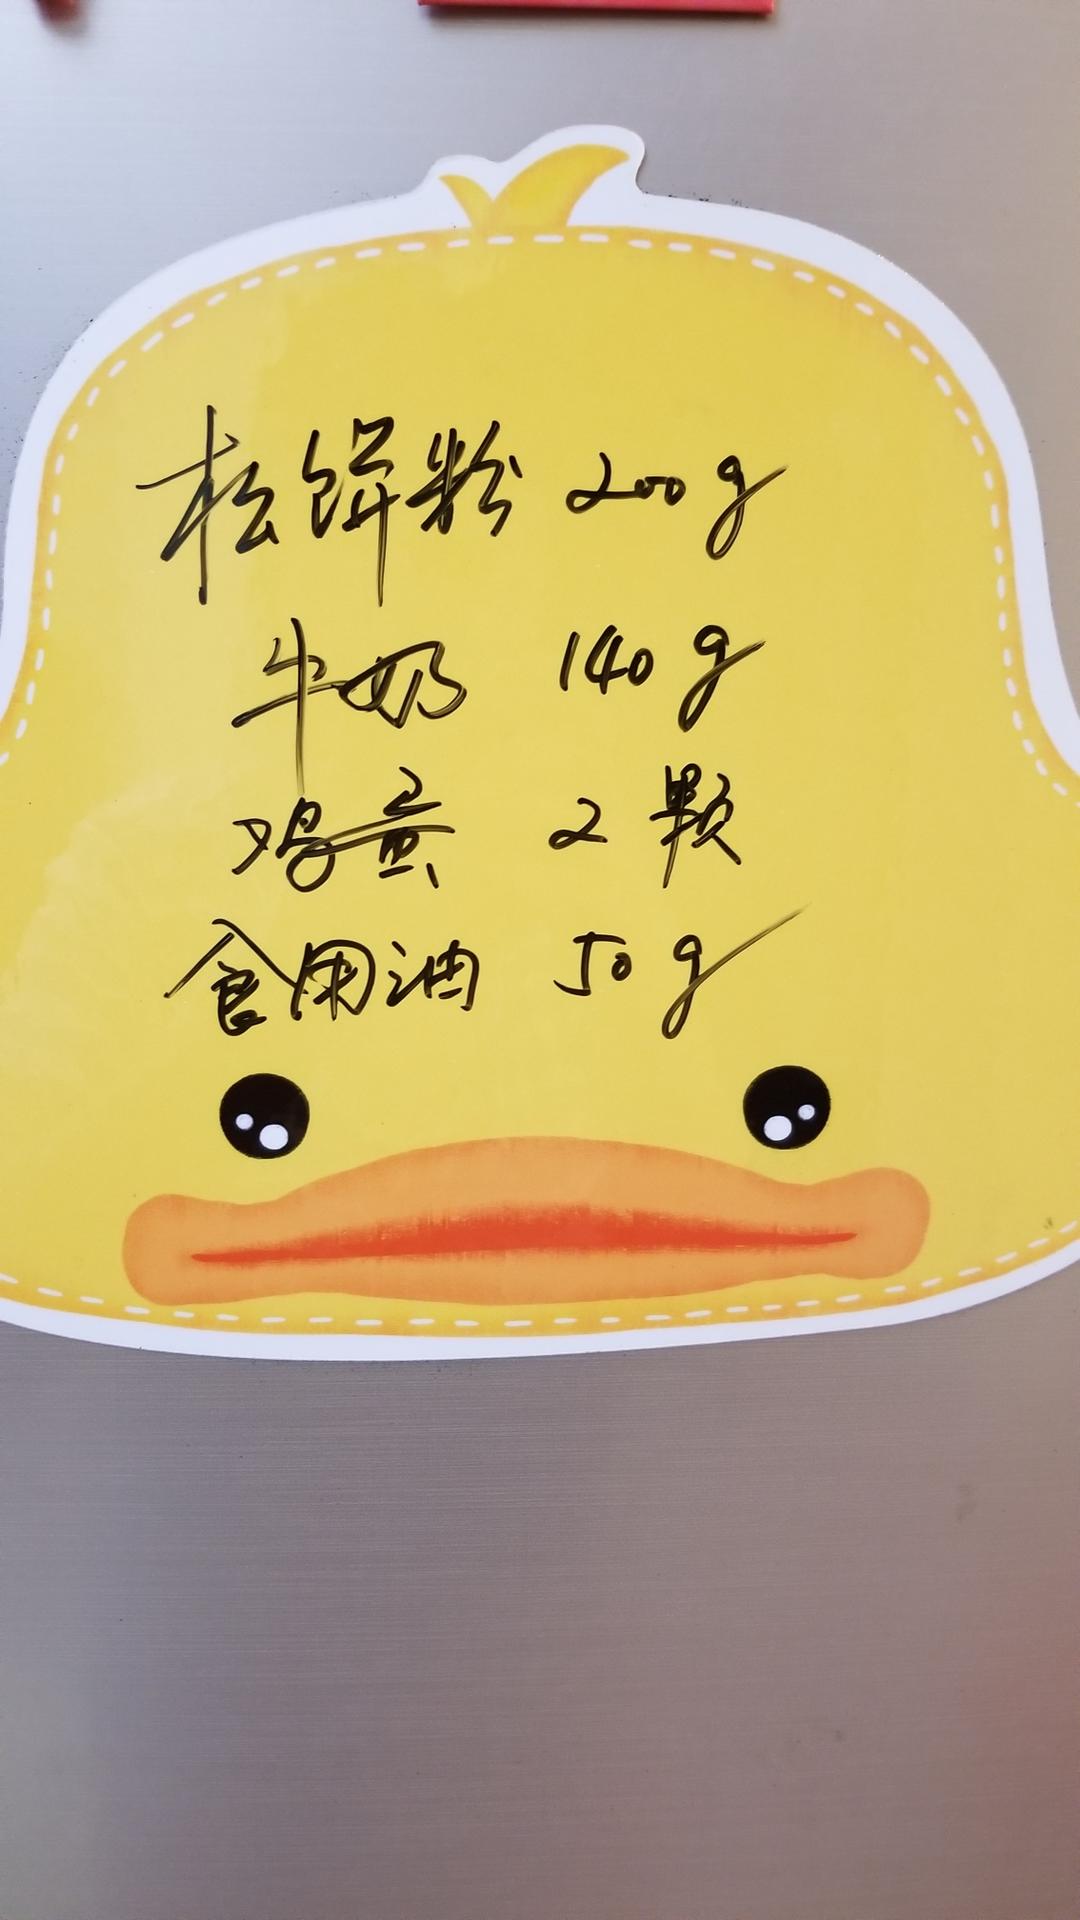 松饼粉 200g
牛奶 140g
鸡蛋 2颗
食用油 50g